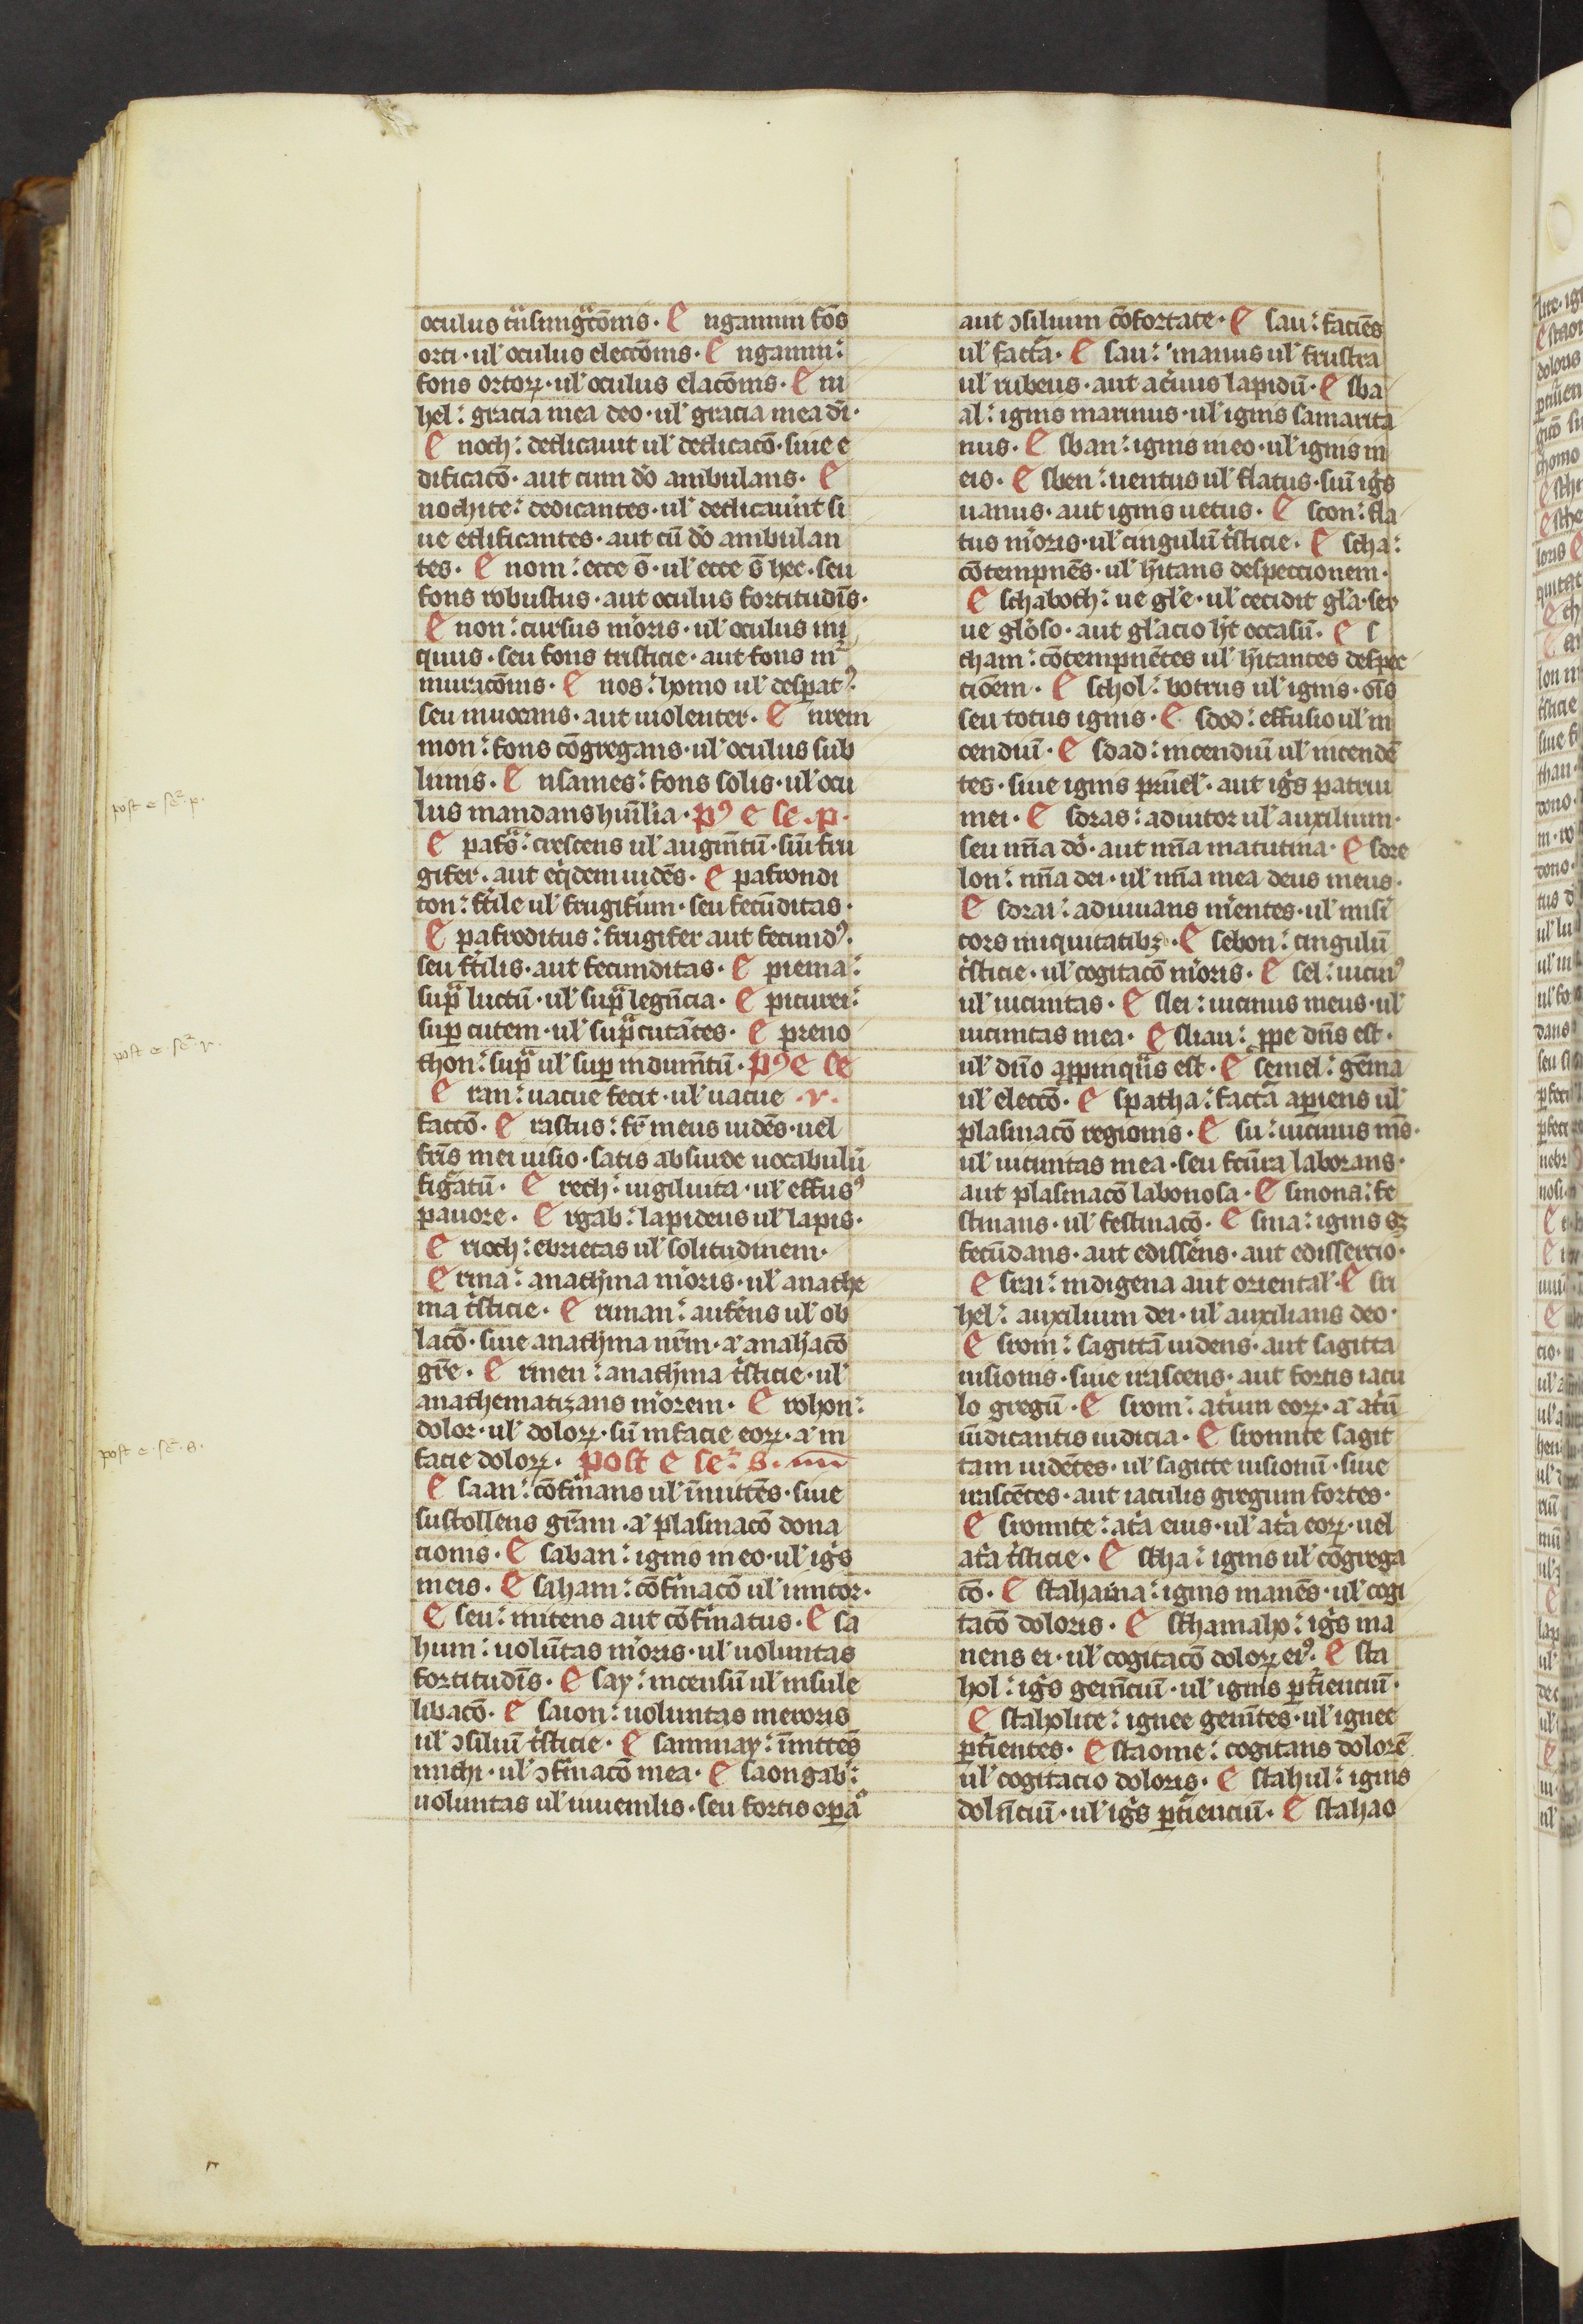 oculus tͣnsmigͣcōnis · E ngannim fōs
orti · ul᷑ oculus eleccōnis · E ngannim:
fons ortoꝝ · ul᷑ oculus elacōnis · E ni
hel: gracia mea deo · ul᷑ gracia mea dī ·
E noch: dedicauit ul᷑ dedicacō · siue e
dificacō · aut cum dō ambulans · E
nochite: dedicantes · ul᷑ dedicauīnt si
ue edificantes · aut cū dō ambulan
tes · E nom: ecce s̄ · ul᷑ ecce s̄ hee · seu
fons robustus · aut oculus fortitudīs ·
E non: cursus m̄oris · ul᷑ oculus ini
quus · seu fons tristicie · aut fons m᷑
muracōnis · E nos: homo ul᷑ despatꝰ ·
seu iuuocans · aut uiolenter · E nrem
mon: fons cōgregans · ul᷑ oculus sub
limis · E nsames: fons solis · ul᷑ ocu
lus mandans humīlia · pꝰ e se · p ·
post e se᷑ · p ·
E pafͣs: crescens ul᷑ augm̄tū · siū fru
gifer · aut eq̇dem uidēs · E pafrondi
ton: ftīle ul᷑ frugifum · seu fecūditas ·
E pafroditus: frugifer aut fecundꝰ ·
seu ftīlis · aut fecunditas · E piema:
supͣ luctū · ul᷑ supͣ legn̄cia · E picurei:
suꝑ cutem · ul᷑ supͣ cutātes · E preno
thon: supͣ ul᷑ suꝑ indumn̄tū · pꝰ e se
post e · se᷑ · r ·
E ran: uacue fecit · ul᷑ uacue · r ·
faccō · E rastus: fr̄ meus uidēs · uel
fr̄is mei uisio · satis absurde uocabulū
figͣatū · E rech: uigilīuita · ul᷑ effusꝰ
pauore · E rgab: lapideus ul᷑ lapis ·
E rioch: ebrietas ul᷑ solitudinem ·
E rma: anathīma m̄oris · ul᷑ anathe
ma tͥsticie · E rman: aufēns ul᷑ ob
lacō · siue anathīma nr̄m · aͭ anaīacō
gr̄e · E rmen: anathīma tͥsticie · ul᷑
anathematizans m̄orem · E rohon:
dolor · ul᷑ doloꝝ · sū in facie eoꝝ · aͭ in
facie doloꝝ · post e se᷑ · s ·
post e · se᷑ · s ·
E saan: cōfīmans ul᷑ īnittēs · siue
sustollens gr̄am · aͭ plasmacō dona
cionis · E saban: ignis m eo · ul᷑ ig̑s
meis · E saham: cōfīmacō ul᷑ innitor ·
E seu: nitens aut cōfīmatus · E sa
hum: uolūtas m̄oris · ul᷑ uoluntas
fortitudīs · E say: incensū ul᷑ insule
libacō · E saion: uoluntas meroris
ul᷑ ↄsiliū tͥsticie · E sammay: īnittēs
michi · ul᷑ ↄfīmacō mea · E saongab:
uoluntas ul᷑ iuuenilis · seu fortis opͣa
aut ↄsilium cōfortate · E sau: faciēs
ul᷑ factā · E sau: manus ul᷑ frustra
ul᷑ rubeus · aut aceruus lapidū · E sba
al: ignis marinus · ul᷑ ignis samarita
nus · E sban: ignis meo · ul᷑ ignis in
eis · E sben: uentus ul᷑ flatus · siū ig̑s
uanus · aut ignis uetus · E scon: fla
tus m̄oris · ul᷑ cingulū tͥsticie · E scha:
cōtempnēs · ul᷑ ir̄itans despeccionem ·
E schaboth: ue gl̄e · ul᷑ cecidit gl̄a · seu
ue glōso · aut glācio h̄t occasū · E s
cham: cōtempnētes ul᷑ ir̄itantes despec
cioēm · E schol: botrus ul᷑ ignis · oīs
seu totus ignis · E sdod: effusio ul᷑ in
cendiū · E sdad: incendiū ul᷑ incendē
tes · siue ignis prūel᷑ · aut ig̑s patrui
mei · E sdras: adiutor ul᷑ auxilium ·
seu mīa dō · aut mīa matutina · E sdre
lon: mīa dei · ul᷑ mīa mea deus meus ·
E sdrai: adiuuans m̄entes · ul᷑ misī
cors iniquitatibꝫ · E sebon: cingulū
tͥsticie · ul᷑ cogitacō m̄oris · E sel: uicinꝰ
ul᷑ uicinitas · E slei: uicinus meus · ul᷑
uicinitas mea · E sliau: ꝓpe dn̄s est ·
ul᷑ dn̄o aꝓpinquās est · E semel: gēma
ul᷑ eleccō · E spatha: factā apiens ul᷑
plasmacō regionis · E su: uicinus m̄s ·
ul᷑ uicinitas mea · seu fcūra laborans ·
aut plasmacō laboriosa · E smona: fe
stinans · ul᷑ festinacō · E sma: ignis sꝫ
fecūdans · aut edissēns · aut edissercio ·
E srai: indigena aut oriental᷑ · E sri
hel: auxilium dei · ul᷑ auxilians deo ·
E srom: sagittā uidens · aut sagitta
uisionis · siue irascens · aut fortis iacu
lo gregū · E srom: atrium eoꝝ · aͭ atrū
iūdicantis iudicia · E sromite sagit
tam uidētes · ul᷑ sagitte uisionū · siue
irascētes · aut iaculis gregum fortes ·
E sromite: atra eius · ul᷑ atra eoꝝ · uel
atra tͥsticie · E stha: ignis ul᷑ cōgrega
cō · E stahama: ignis manēs · ul᷑ cogi
tacō doloris · E sthamaho: ig̑s ma
nens ei · ul᷑ cogitacō doloꝝ eiꝰ · E sta
hol: ig̑s gemn̄ciū · ul᷑ ignis ꝑtīenciū ·
E staholite: ignee gemn̄tes · ul᷑ ignee
ꝑtīentes · E staome: cogitans dolorē
ul᷑ cogitacio doloris · E stahul: ignis
dolnciū · ul᷑ ig̑s ꝑtīenciū · E stahao